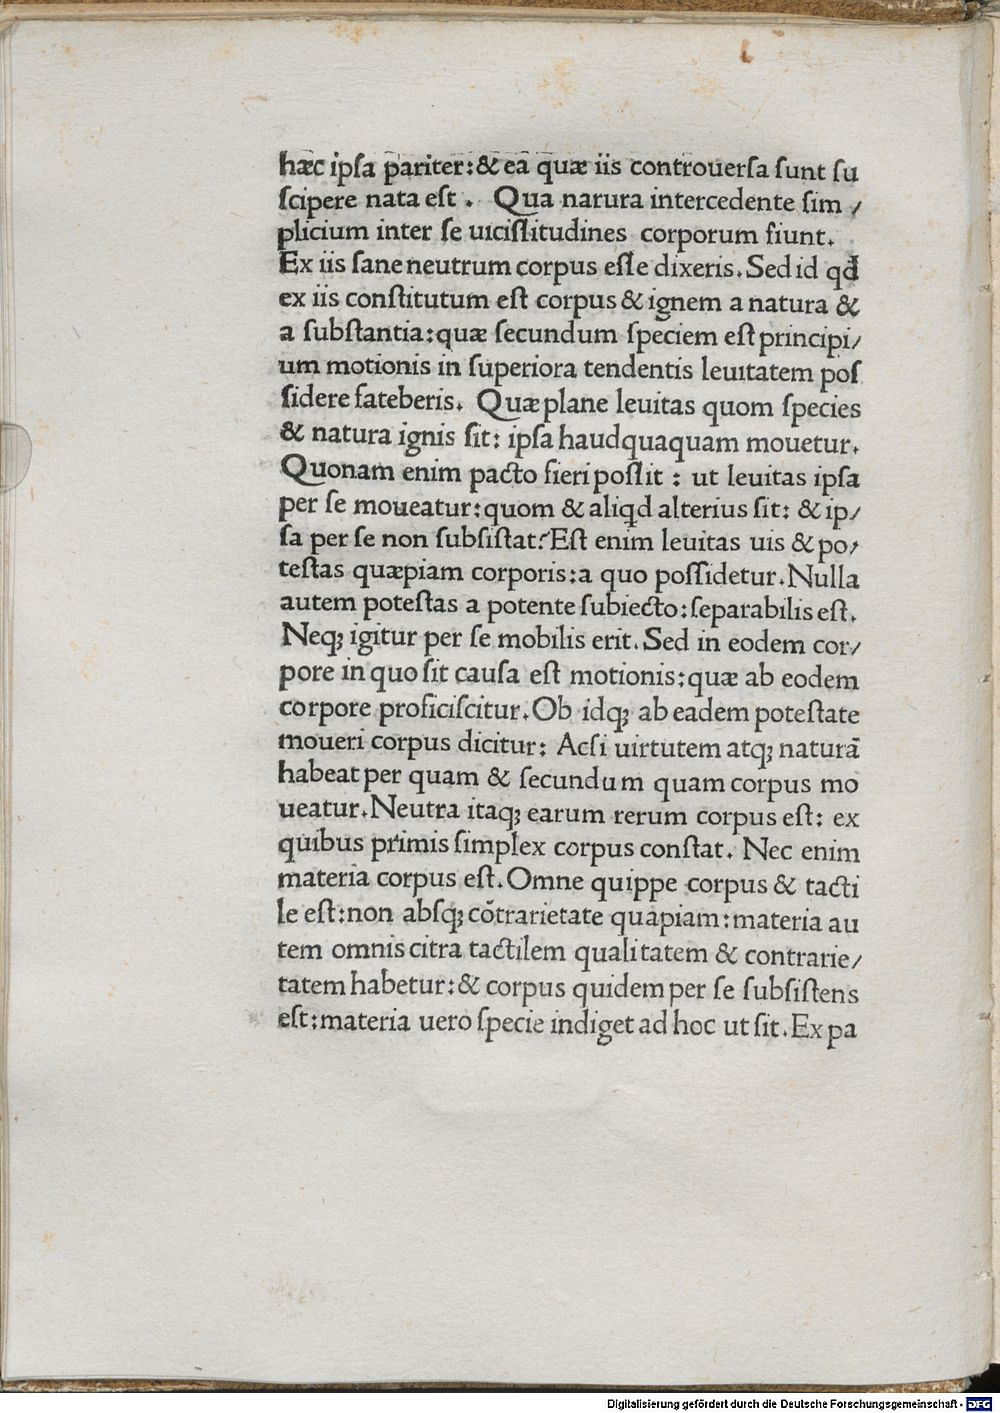 hæc ipsa pariter: & ea quæ iis controuersa sunt su
scipere nata est . Qua narura intercedente sim /
plicium inter se uicissitudines corporum fiunt.
Ex iis sane neutrum corpus esse dixeris. Sed id qd
ex iis constitutum est corpus & ignem a natura &
a substantia: quæ secundum speciem est principi/
um motionis in superiora tendentis leuitatem pos
sidere fateberis. Quæ plane leuitas quom species
& natura ignis sit: ipsa haudquaquam mouetur.
Quonam enim pacto fieri possit : ut leuitas ipsa
per se moueatur: quom & aliqd alterius sit: & ip/
sa per se non subsistat? Est enim leuitas uis & po/
testas quæpiam corporis: a quo possidetur. Nulla
autem potestas a potente subiecto: separabilis est.
Neqꝫ igitur per se mobilis erit. Sed in eodem cor/
pore in quo sit causa est motionis: quæ ab eodem
corpore proficiscitur. Ob idqꝫ ab eadem potestate
moueri corpus dicitur: Acsi uirtutem atqꝫ naturā
habeat per quam & secundum quam corpus mo
ueatur. Neutra itaqꝫ earum rerum corpus est: ex
quibus primis simplex corpus constat. Nec enim
materia corpus est. Omne quippe corpus & tacti
le est: non absqꝫ cōtrarietate quapiam: materia au
tem omnis citra tactilem qualitatem & contrarie/
tatem habetur: & corpus quidem per se subsistens
est: materia uero specie indiget ad hoc ut sit. Ex pa
Digitalisierung gefördert durch die Deutsche Forschungsgemeinschaft - DFG